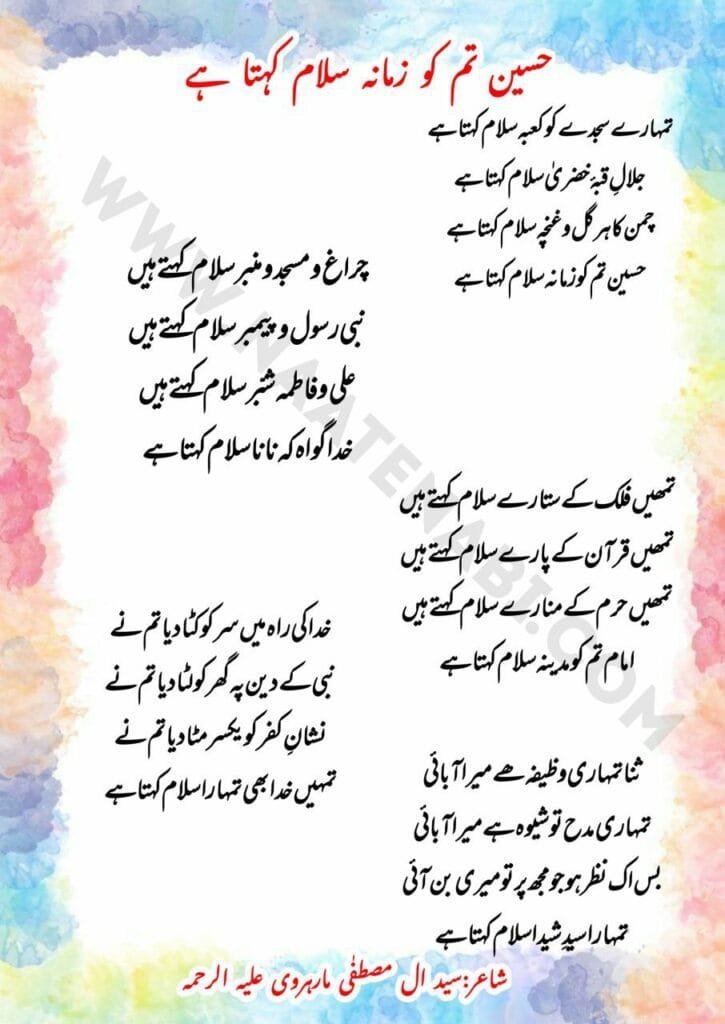 حسین تم کو زمانہ سلام کہتا ہے
تمہارے سجدے کو کعبہ سلام کہتا ہے
جلالِ قبۂ خضریٰ سلام کہتا ہے
چمن کا ہر گل و غنچہ سلام کہتا ہے
حسین تم کو زمانہ سلام کہتا ہے
چراغ و مسجد و منبر سلام کہتے ہیں
نبی رسول و پیمبر سلام کہتے ہیں
علی و فاطمہ شبّر سلام کہتے ہیں
خدا گواہ کہ نانا سلام کہتا ہے
تمھیں فلک کے ستارے سلام کہتے ہیں
تمھیں قرآن کے پارے سلام کہتے ہیں
تمھیں حرم کے منارے سلام کہتے ہیں
امام تم کو مدینہ سلام کہتا ہے
خدا کی راہ میں سر کو کٹا دیا تم نے
نبی کے دین پہ گھر کو لٹا دیا تم نے
نشانِ کفر کو یکسر مٹا دیا تم نے
تمہیں خدا بھی تمہارا سلام کہتا ہے
ثنا تمہاری وظیفہ ھے میرا آبائی
تمہاری مدح تو شیوہ ہے میرا آبائی
بس اک نظر ہو جو مجھ پر تو میری بن آئی
تمہارا سیدِ شیدا سلام کہتا ہے
شاعر:سید ال مصطفٰی مارہروی علیہ الرحمہ
WWW.NAATENABI.COM